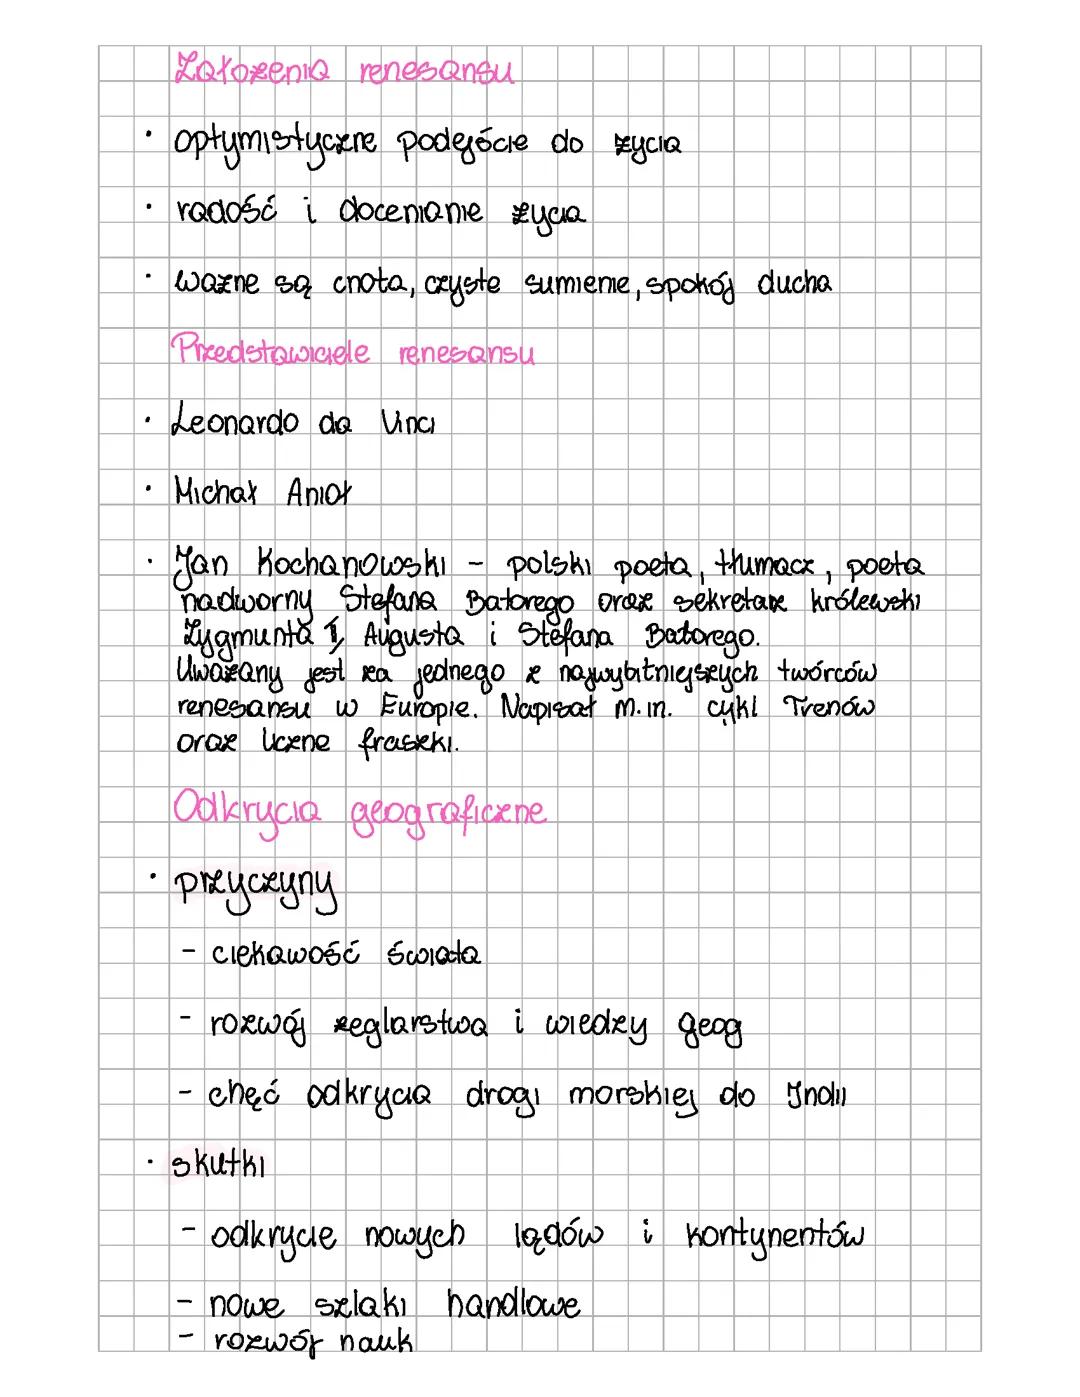 Założenia renesansu
• optymistyczne podejście do życia
• radość i docenianie życia
• ważne są cnota, czyste sumienie, spokój ducha
Przedstawiciele renesansu
• Leonardo da Vinci
• Michał Anioł
• Jan Kochanowski - polski poeta, tłumacz, poeta
nadworny Stefana Batorego oraz sekretarz królewski
Zygmunta I, Augusta i Stefana Batorego.
Uważany jest za jednego z najwybitniejszych twórców
renesansu w Europie. Napisał m.in. cykl Trenów
oraz liczne fraszki.
Odkrycia geograficzne
• przyczyny
- ciekawość świata
- rozwój żeglarstwa i wiedzy geog
- chęć odkrycia drogi morskiej do Indii
• skutki
- odkrycie nowych lądów i kontynentów
- nowe szlaki handlowe
- rozwój nauk